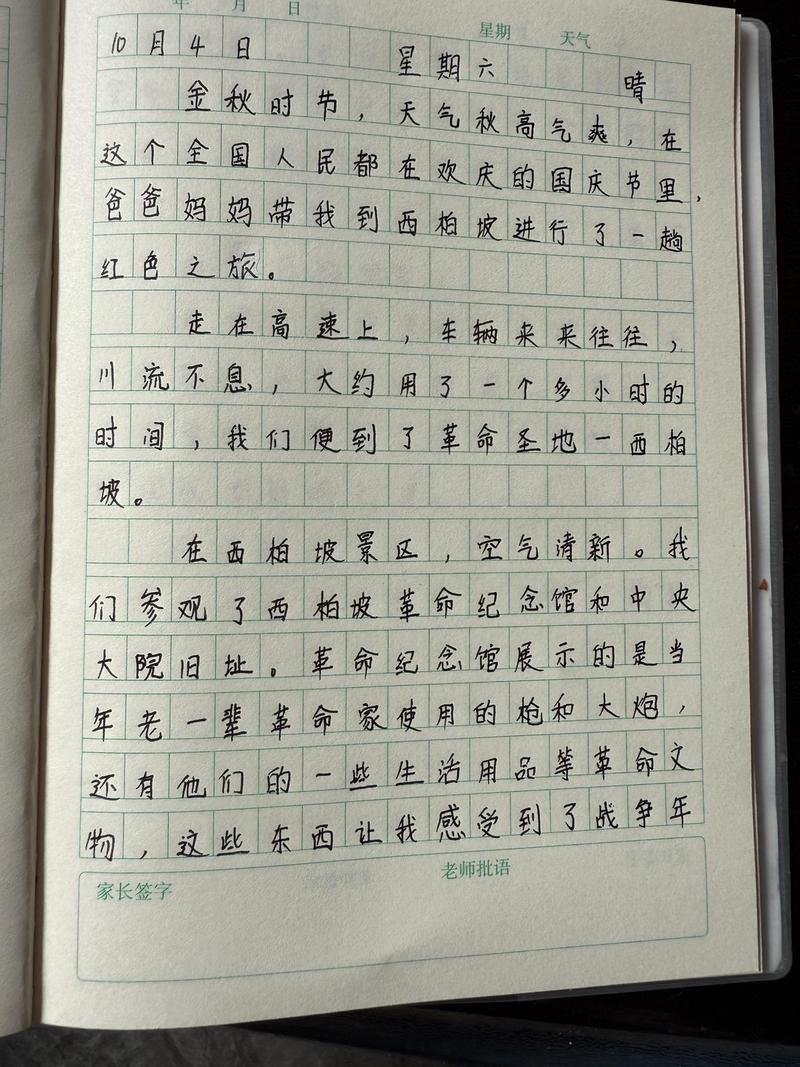 年 月 日 星期 天气
10月4日 星期六 晴
金秋时节，天气秋高气爽，在
这个全国人民都在欢庆的国庆节里，
爸爸妈妈带我到西柏坡进行了一趟
红色之旅。
走在高速上，车辆来来往往，
川流不息，大约用了一个多小时的
时间，我们便到了革命圣地一西柏
坡。
在西柏坡景区，空气清新。我
们参观了西柏坡革命纪念馆和中央
大院旧址。革命纪念馆展示的是当
年老一辈革命家使用的枪和大炮，
还有他们的一些生活用品等革命文
物，这些东西让我感受到了战争年
家长签字 老师批语